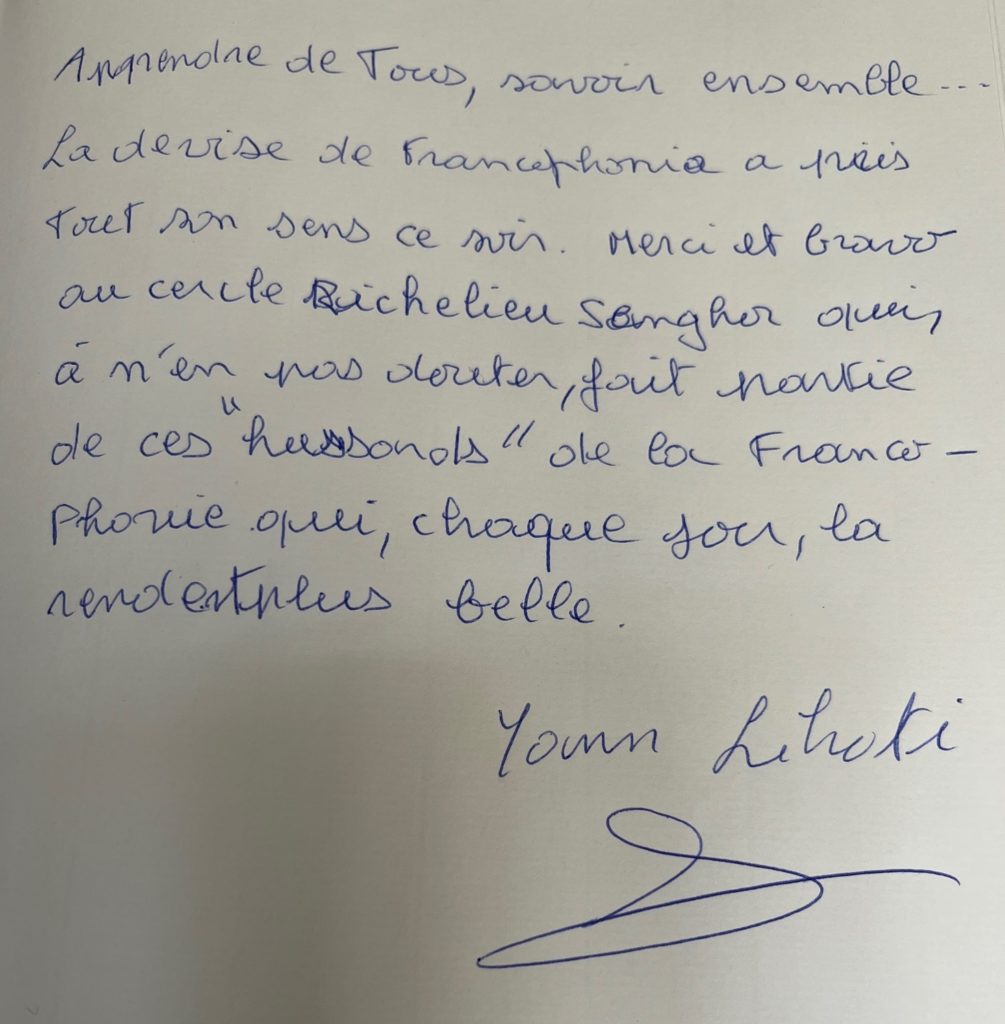 Apprendre de Tous, savoir ensemble...
La devise de Francophonia a pris
tout son sens ce soir. Merci et bravo
au cercle Richelieu Senghor qui,
à n'en pas douter, fait partie
de ces "hussards" de la Franco-
phonie qui, chaque jour, la
rendent plus belle.
Yoann